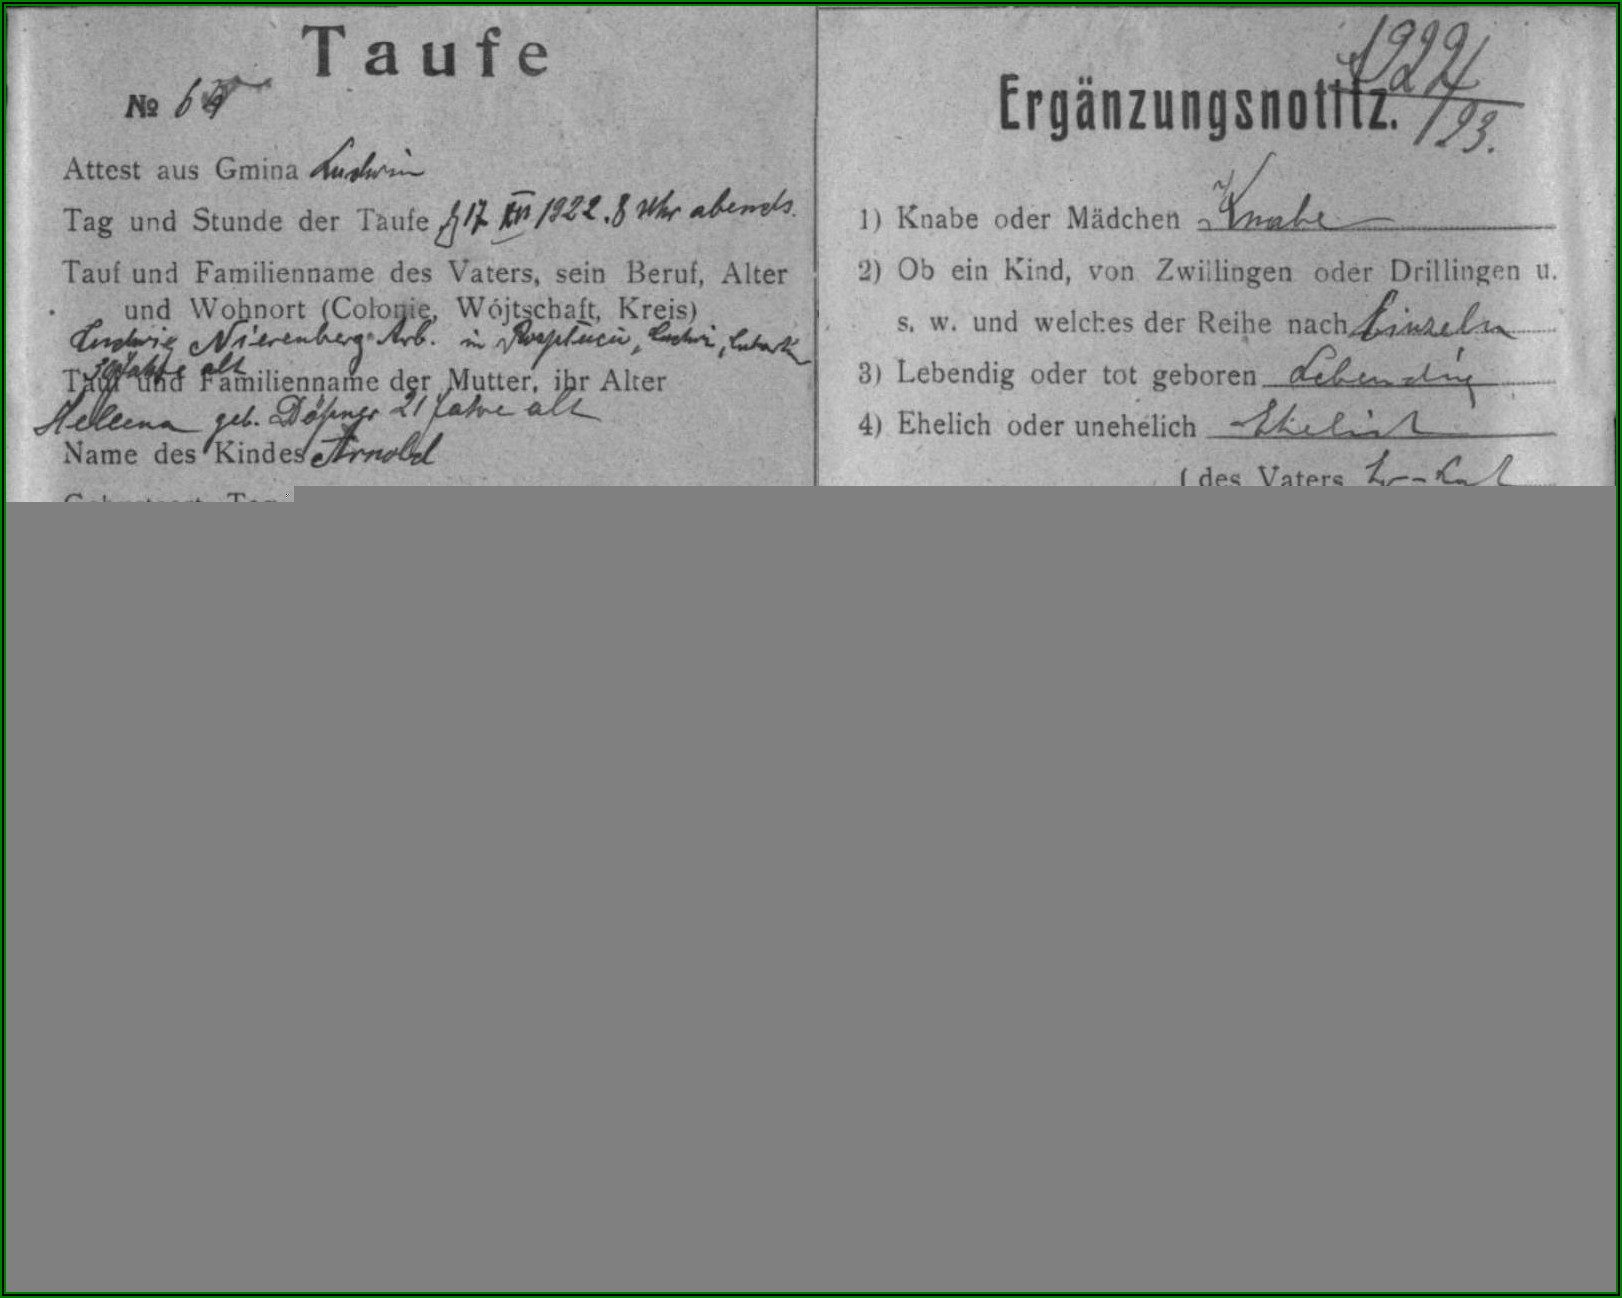 Taufe
№ 6
Attest aus Gmina Ludwin
Tag und Stunde der Taufe 17 XII 1922. 8 Uhr abends.
Tauf und Familienname des Vaters, sein Beruf, Alter
und Wohnort (Colonie, Wójtschaft, Kreis)
Ludwig Nierenberg Arb. in
30 Jahre alt
Tauf und Familienname der Mutter, ihr Alter
Helena geb. 21 Jahre alt
Name des Kindes Arnold
Ergänzungsnotitz.
23.
1) Knabe oder Mädchen Knabe
2) Ob ein Kind, von Zwillingen oder Drillingen u.
s. w. und welches der Reihe nach Einzeln
3) Lebendig oder tot geboren Lebendig
4) Ehelich oder unehelich Ehelich
des Vaters